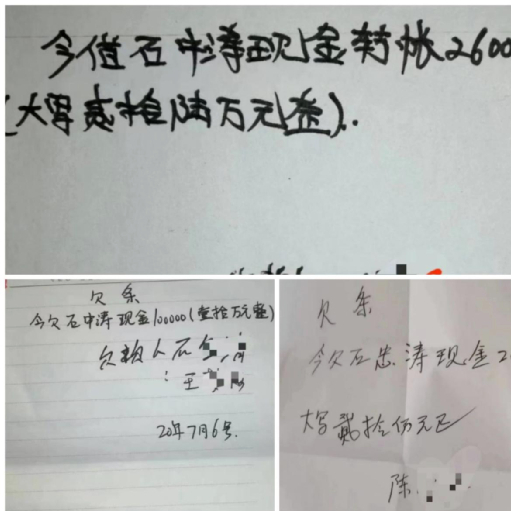 今借石中涛现金转帐2600
(大写贰拾陆万元整).
欠条
今欠石中涛现金100000(壹拾万元整)
欠款人石
:王
20年7月6号.
欠条
今欠石忠涛现金2
大写贰拾万元正
陈